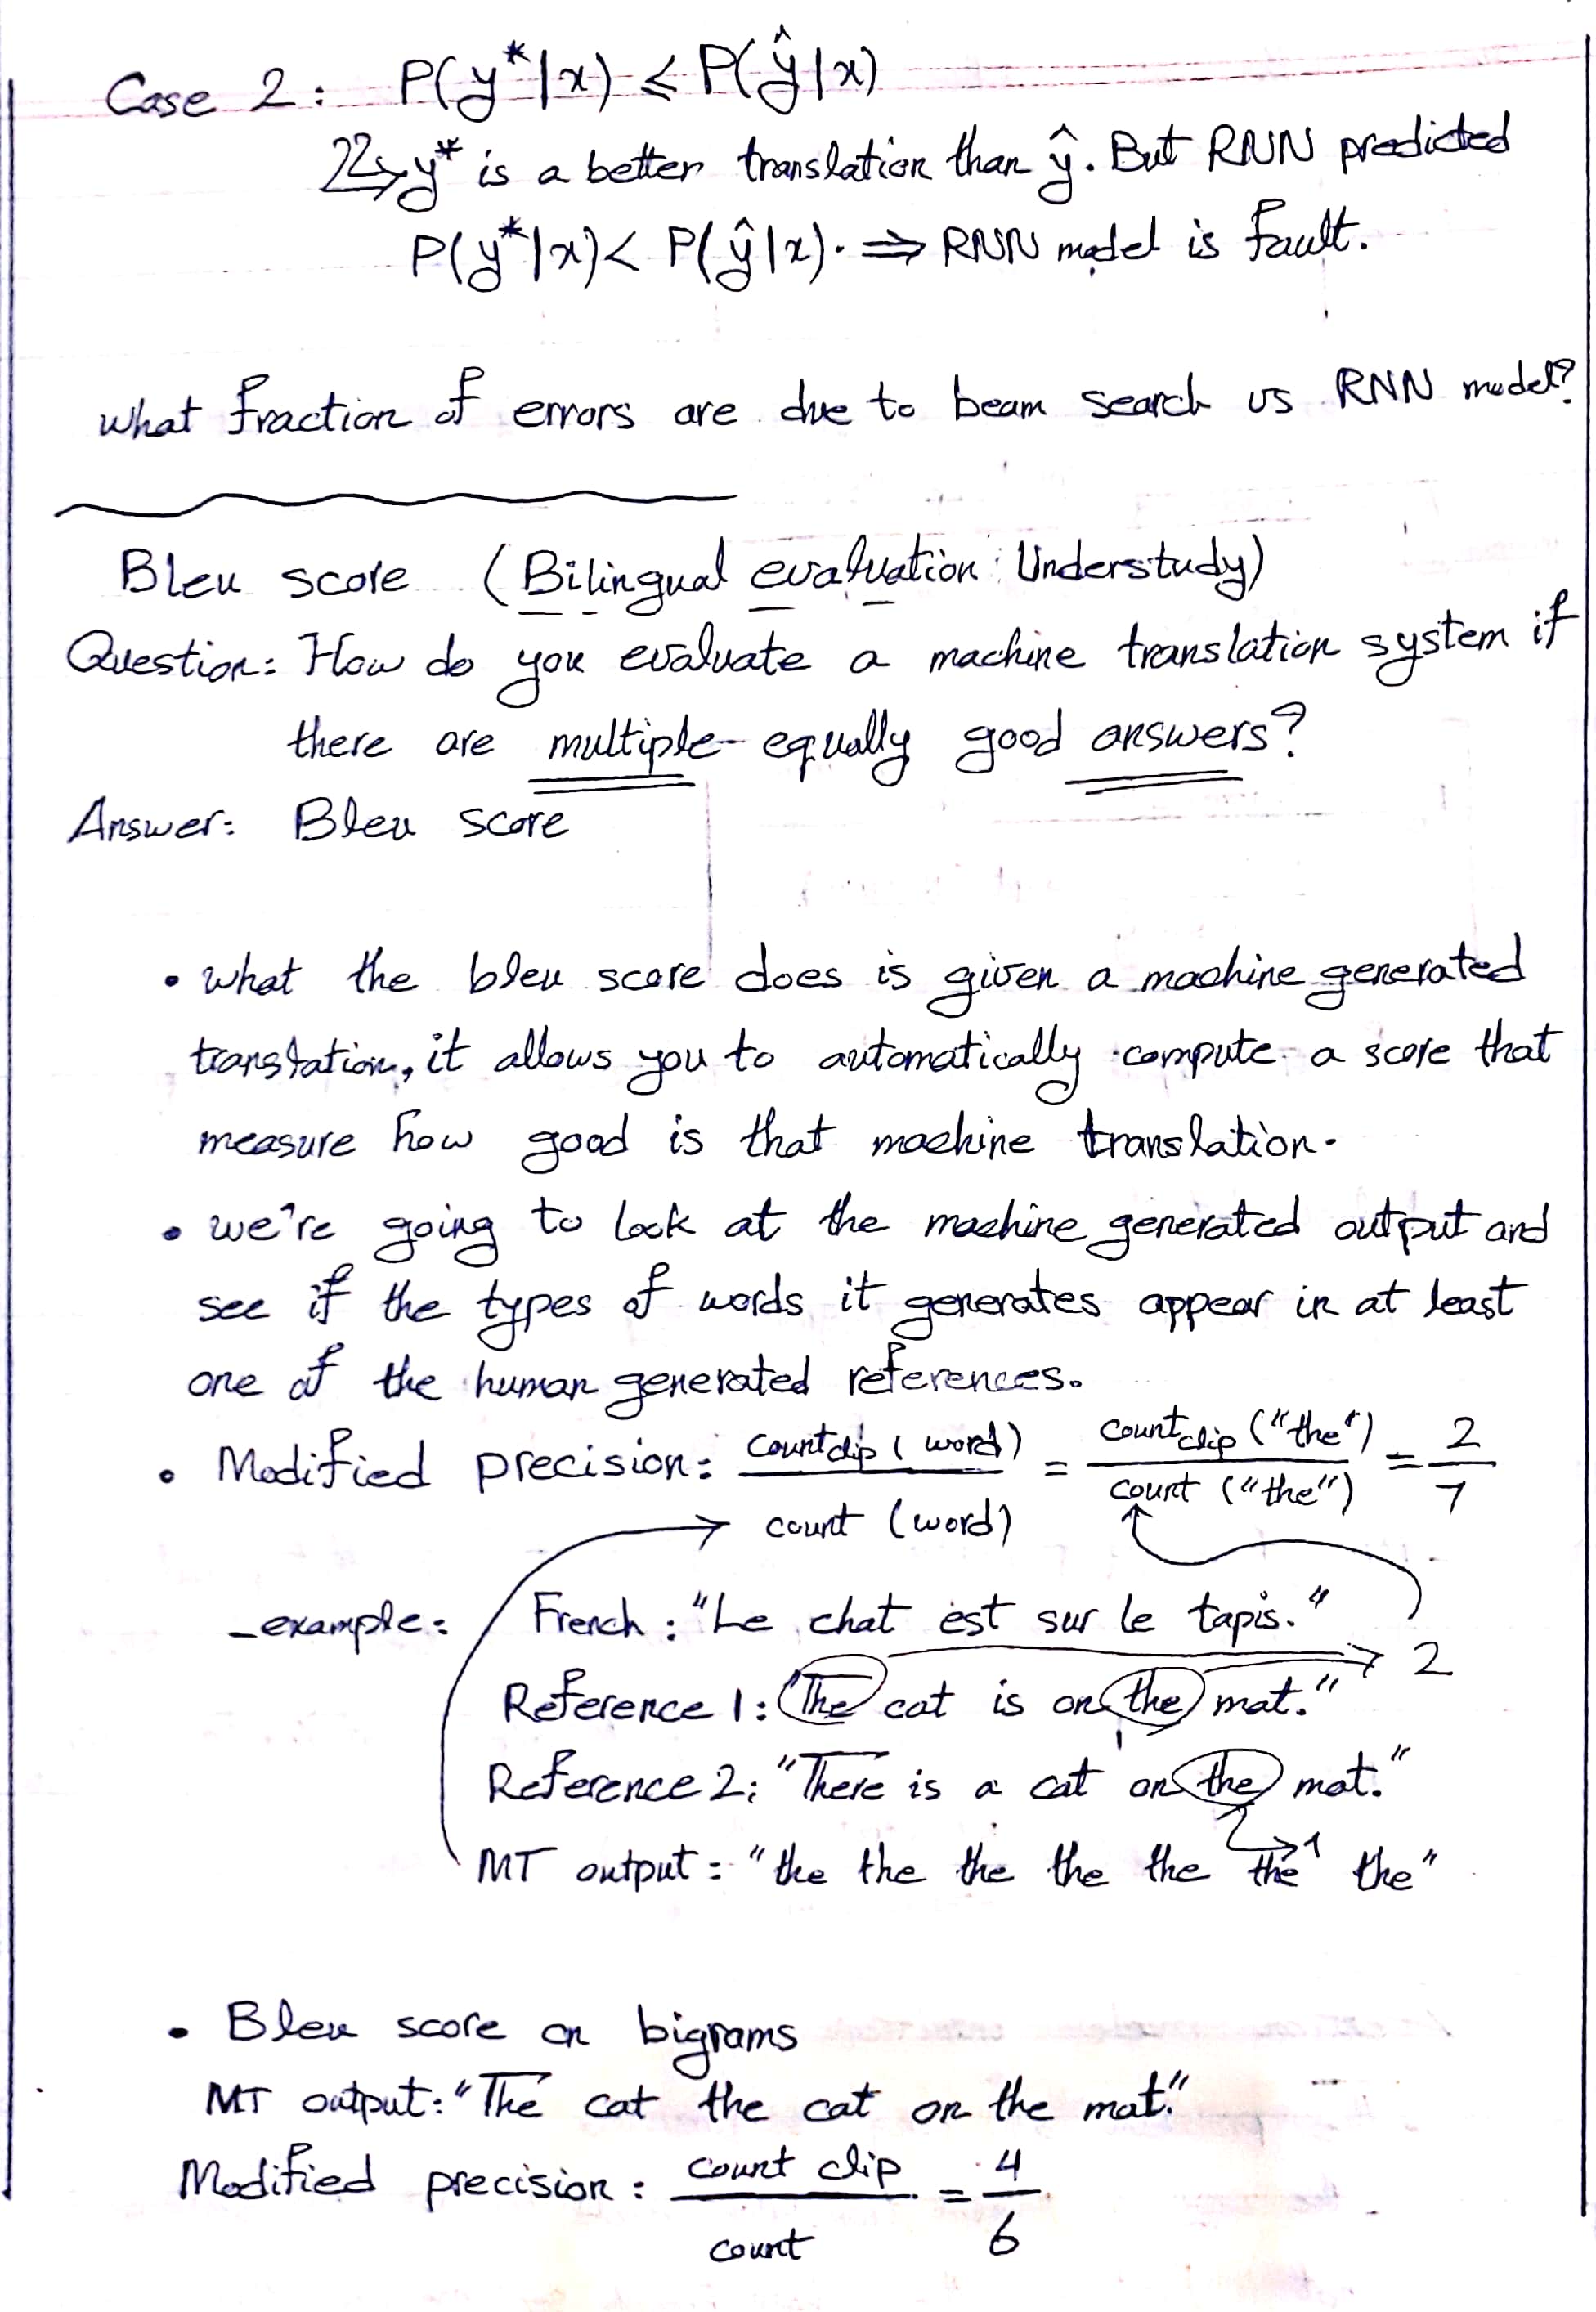 Case 2: P(y*|x) ≤ P(ŷ|x)
↳ y* is a better translation than ŷ. But RNN predicted
P(y*|x) < P(ŷ|x). ⇒ RNN model is fault.
what fraction of errors are due to beam search vs RNN model?
Bleu score (Bilingual evaluation Understudy)
Question: How do you evaluate a machine translation system if
there are multiple equally good answers?
Answer: Bleu score
• what the bleu score does is given a machine generated
translation, it allows you to automatically compute a score that
measure how good is that machine translation.
• we're going to look at the machine generated output and
see if the types of words it generates appear in at least
one of the human generated references.
• Modified precision: countclip (word) / count (word) = countclip ("the") / count ("the") = 2/7
- example: French: "Le chat est sur le tapis."
Reference 1: "The cat is on the mat." → 2
Reference 2: "There is a cat on the mat." → 1
MT output: "the the the the the the the"
• Bleu score on bigrams
MT output: "The cat the cat on the mat."
Modified precision: count clip / count = 4/6